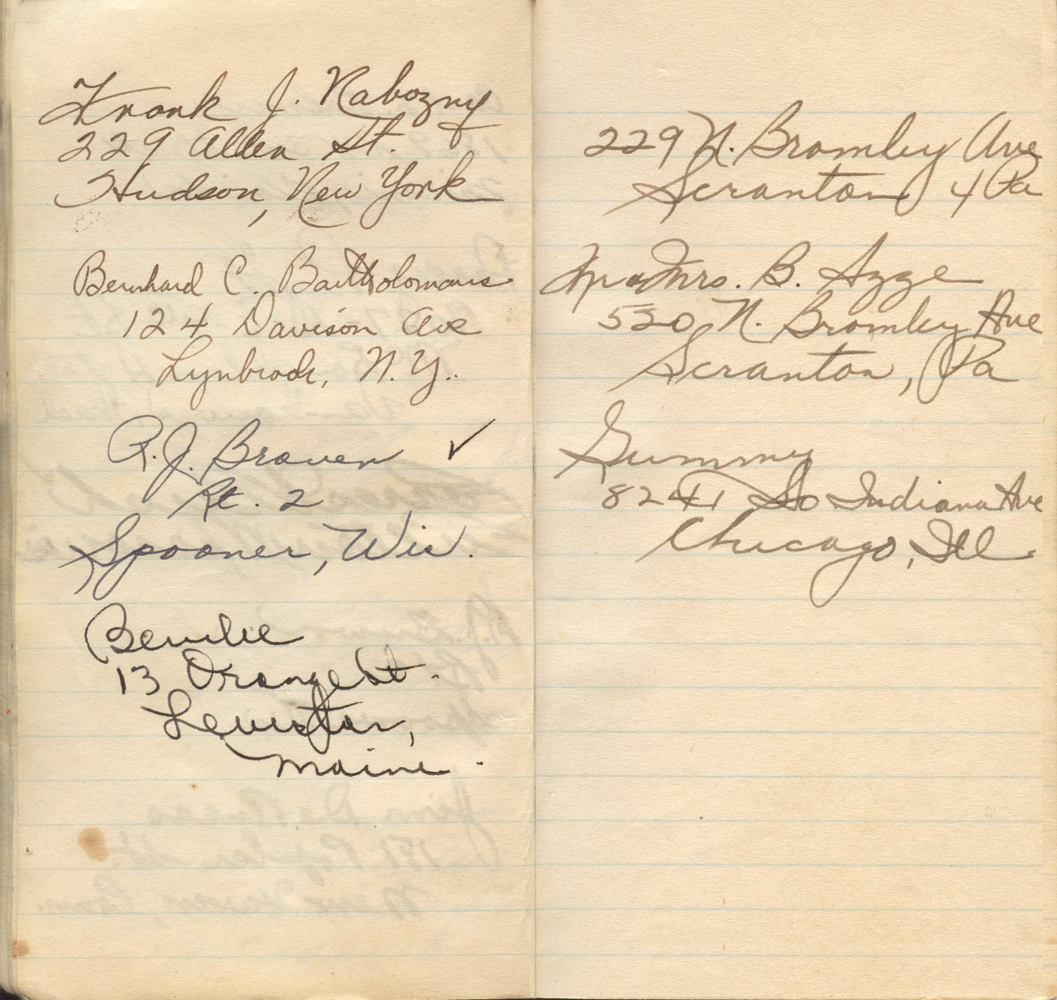 Frank J. Nabozny
229 Allen St.
Hudson, New York
Bernhard C. Bartholomaus
124 Davison Ave
Lynbrook, N.Y.
R.J. Braven ✓
Rt. 2
Spooner, Wis.
13 Orange St.
Lewiston,
Maine.
229 N. Bromley Ave
Scranton 4 Pa
Mr & Mrs. B. Azze
520 N. Bromley Ave
Scranton, Pa
Gummy
8241 So Indiana Ave
Chicago, Ill